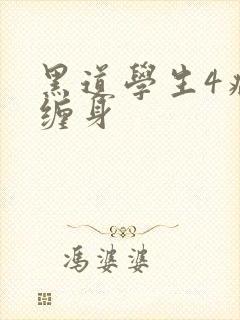 黑道學生4
缠身
馮婆婆